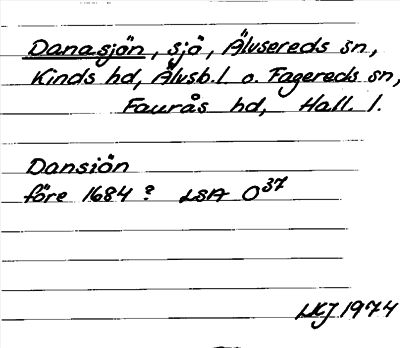 Danasjön, sjö, Älvsereds sn,
Kinds hd, Älvsb. l. o. Fagereds sn,
Faurås hd, Hall. l.
Dansiön
före 1684? LSA O37
LKJ 1974